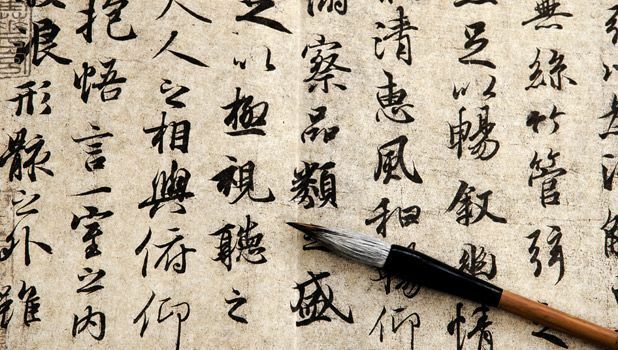 無絲竹管弦之
足以暢敘幽情
清惠風和暢仰
察品類之盛
以極視聽之
人之相與俯仰
抱悟言一室之内
浪形骸之外雖